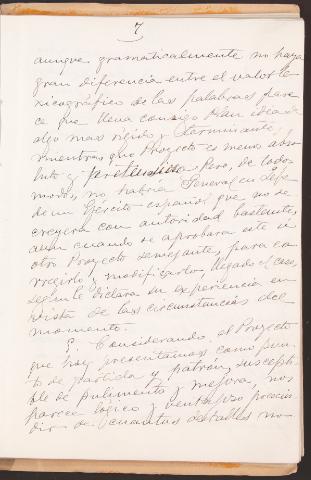 7
aunque gramaticalmente no haya
gran diferencia entre el valor le-
xicográfico de las palabras, pare
ce que lleva consigo Plan idea de
algo mas rígido y terminante,
mientras que Proyecto es menos abso
luto y Pero, de todos
modos, no habría General en Jefe
de un Ejército español que no se
creyera con autoridad bastante,
aun cuando se aprobara este ú
otro Proyecto semejante, para co
rregirlo y modificarlo, llegado el caso,
según le dictara su experiencia en
vista de las circunstancias del
momento.
Considerando, el Proyecto
que hoy presentamos como pun
to de partida y patron, suscepti-
ble de aulmento y mejora, nos
parece lógico y ventajoso prescin-
dir de cuantos detalles no